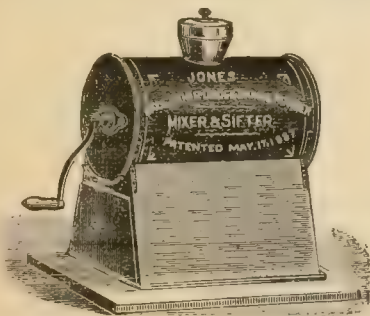 JONES
MIXER & SIFTER
PATENTED MAY. 17. 1887